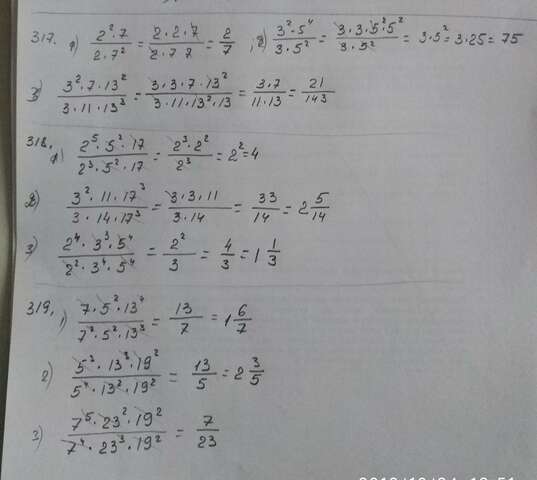 317. 1) 2²·7 / 2·7² = 2·2·7 / 2·7·7 = 2/7 ; 2) 3²·5⁴ / 3·5² = 3·3·5²·5² / 3·5² = 3·5² = 3·25 = 75
3) 3²·7·13² / 3·11·13³ = 3·3·7·13² / 3·11·13²·13 = 3·7 / 11·13 = 21/143
318. 1) 2⁵·5²·17 / 2³·5²·17 = 2³·2² / 2³ = 2² = 4
2) 3²·11·17³ / 3·14·17³ = 3·3·11 / 3·14 = 33/14 = 2 5/14
3) 2⁴·3³·5⁴ / 2²·3⁴·5⁴ = 2²/3 = 4/3 = 1 1/3
319. 1) 7·5²·13⁴ / 7²·5²·13³ = 13/7 = 1 6/7
2) 5³·13³·19² / 5⁴·13²·19² = 13/5 = 2 3/5
3) 7⁵·23²·19² / 7⁴·23³·19² = 7/23